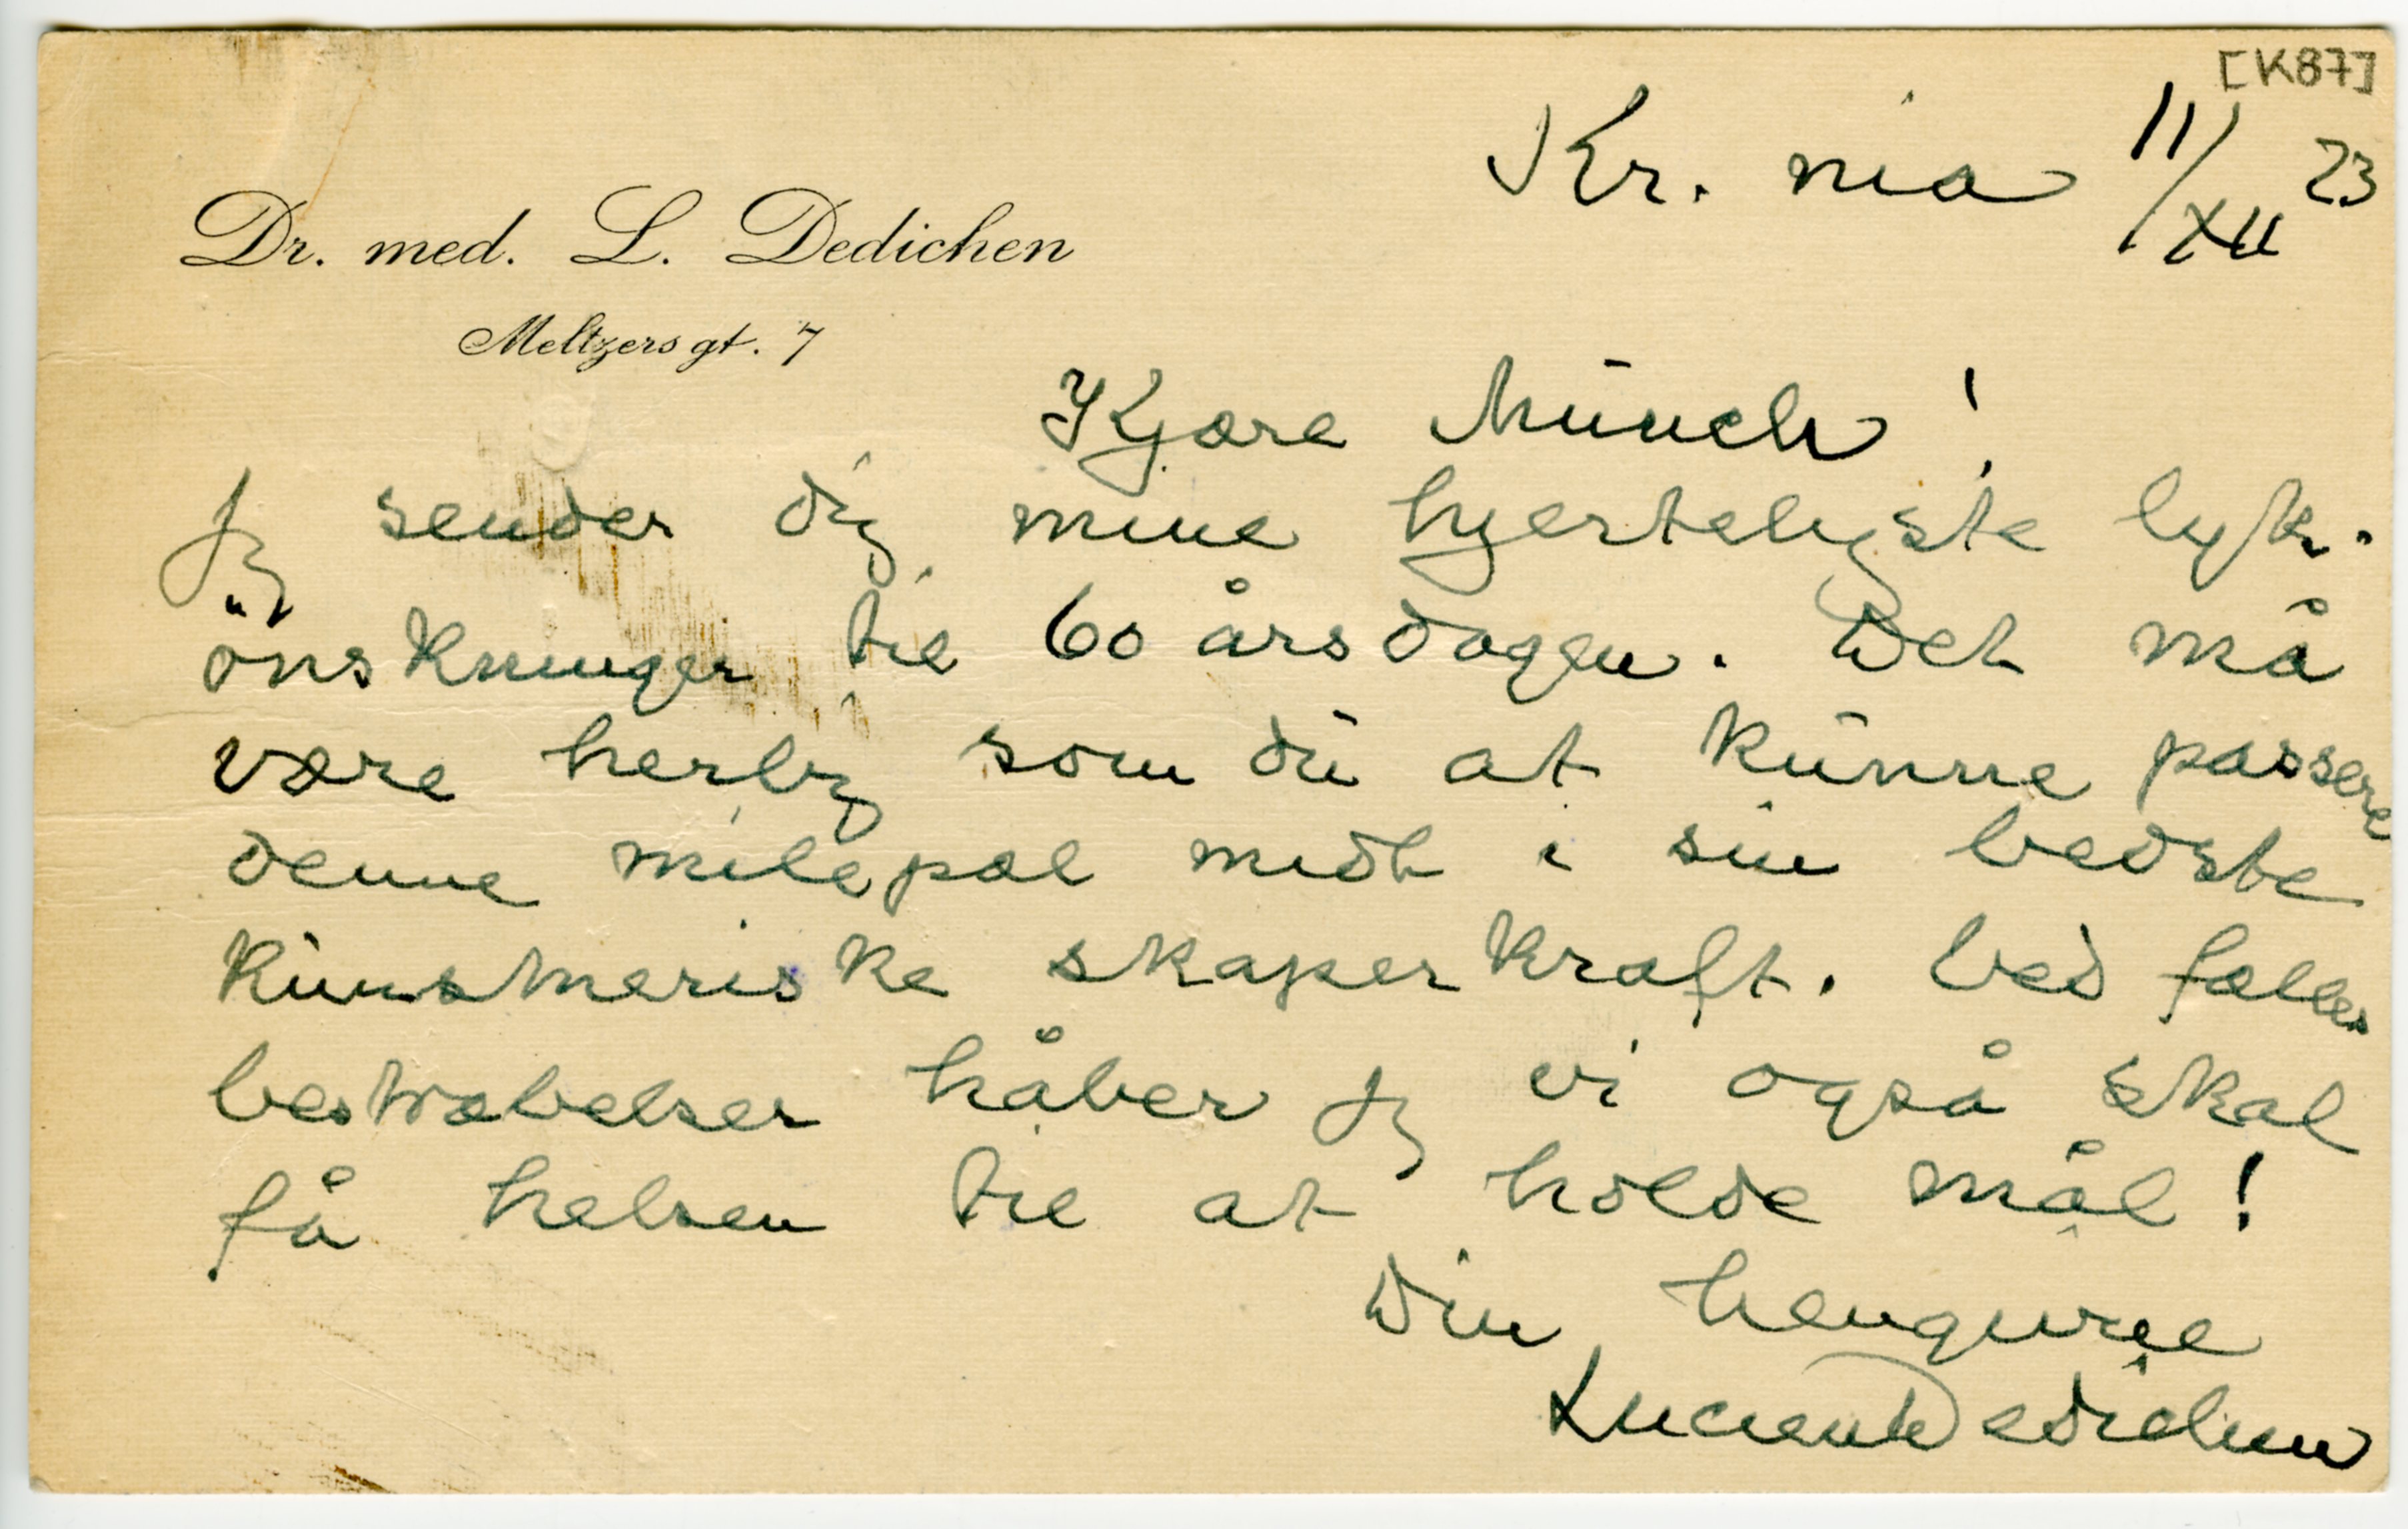 [K87]
Kr. nia 11/XII 23
Dr. med. L. Dedichen
Meltzersgt. 7
Kjære Münch!
Jeg sender dig mine hjerteligste lyk-
önskninger til 60 årsdagen. Det må
være herlig som du at kunne passere
denne milepæl midt i sin bedste
kunstneriske skaperkraft. Ved fælles
bestræbelser håber jeg vi også skal
få helsen til at holde mål!
Din hengivne
Lucien Dedichen